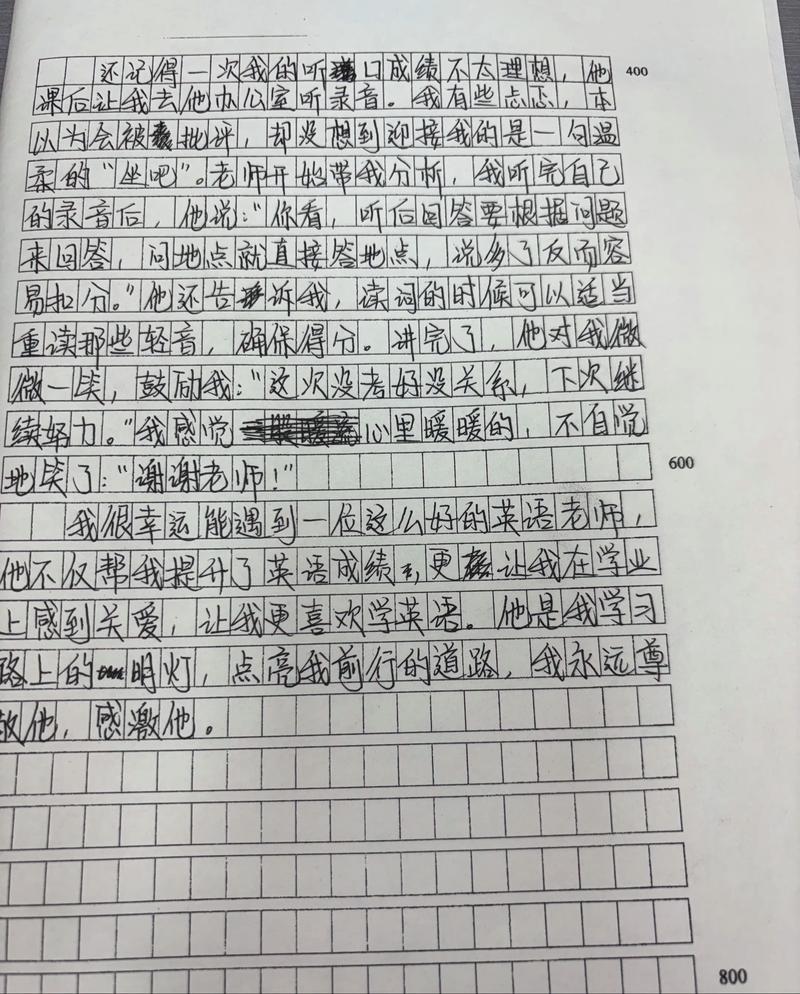 还记得一次我的听口成绩不太理想，他
400
课后让我去他办公室听录音。我有些忐忑，本
以为会被批评，却没想到迎接我的是一句温
柔的“坐吧”。老师开始带我分析，我听完自己
的录音后，他说：“你看，听后回答要根据问题
来回答，问地点就直接答地点，说多了反而容
易扣分。”他还告诉我，读词的时候可以适当
重读那些轻音，确保得分。讲完了，他对我微
微一笑，鼓励我：“这次没考好没关系，下次继
续努力。”我感觉心里暖暖的，不自觉
地笑了：“谢谢老师！”
600
我很幸运能遇到一位这么好的英语老师，
他不仅帮我提升了英语成绩，更让我在学业
上感到关爱，让我更喜欢学英语。他是我学习
路上的明灯，点亮我前行的道路，我永远尊
敬他，感激他。
800